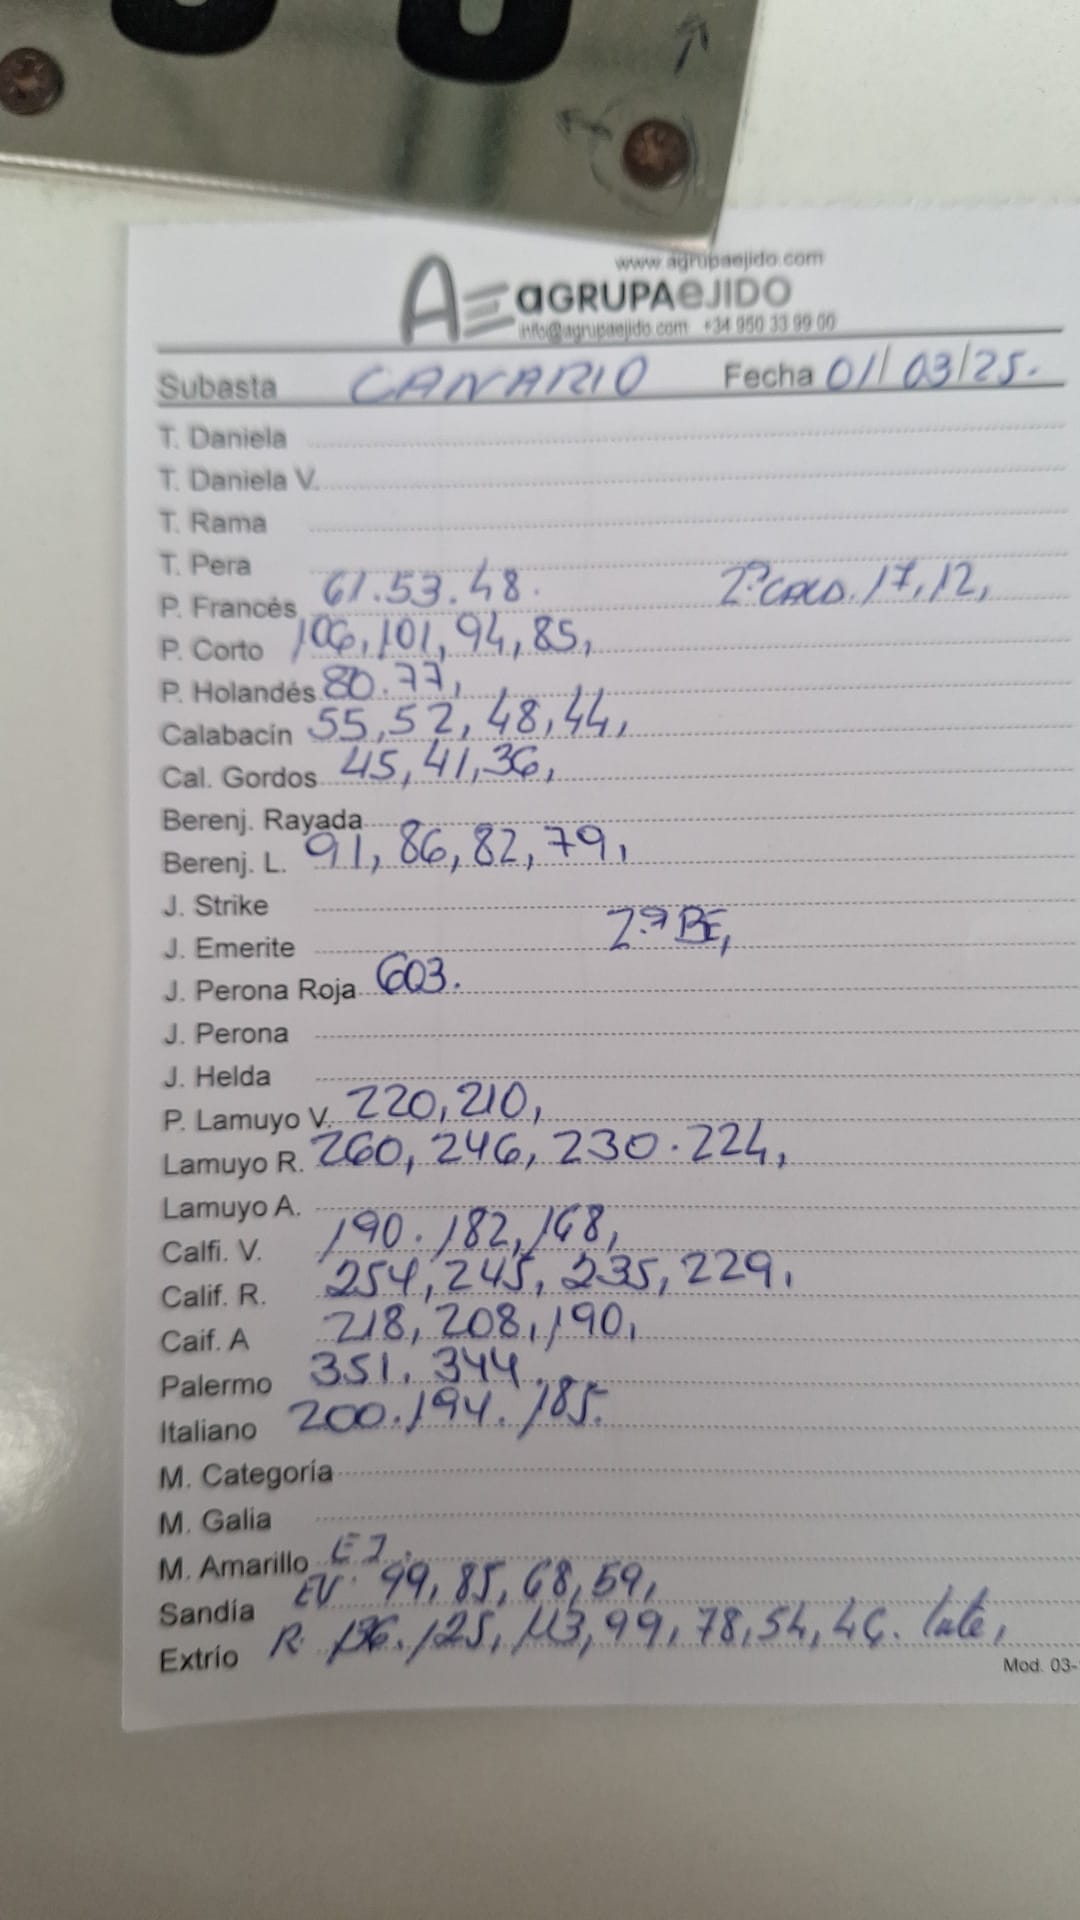 www.agrupaejido.com
AE aGRUPAeJIDO
info@agrupaejido.com +34 950 33 99 00
Subasta CANARIO Fecha 01/03/25.
T. Daniela
T. Daniela V.
T. Rama
T. Pera
P. Francés 61.53.48. 2ª CALD. 17, 12,
P. Corto 106, 101, 94, 85,
P. Holandés 80.77,
Calabacín 55, 52, 48, 44,
Cal. Gordos 45, 41, 36,
Berenj. Rayada
Berenj. L. 91, 86, 82, 79,
J. Strike
J. Emerite 2ª BE,
J. Perona Roja 603.
J. Perona
J. Helda
P. Lamuyo V. 220, 210,
Lamuyo R. 260, 246, 230. 224,
Lamuyo A.
Calfi. V. 190. 182, 168,
Calif. R. 254, 245, 235, 229,
Caif. A 218, 208, 190,
Palermo 351. 344.
Italiano 200. 194. 185.
M. Categoría
M. Galia
M. Amarillo EJ.
Sandía EV. 99, 85, 68, 59,
Extrío R. 136. 125, 113, 99, 78, 54, 46. lute,
Mod. 03-